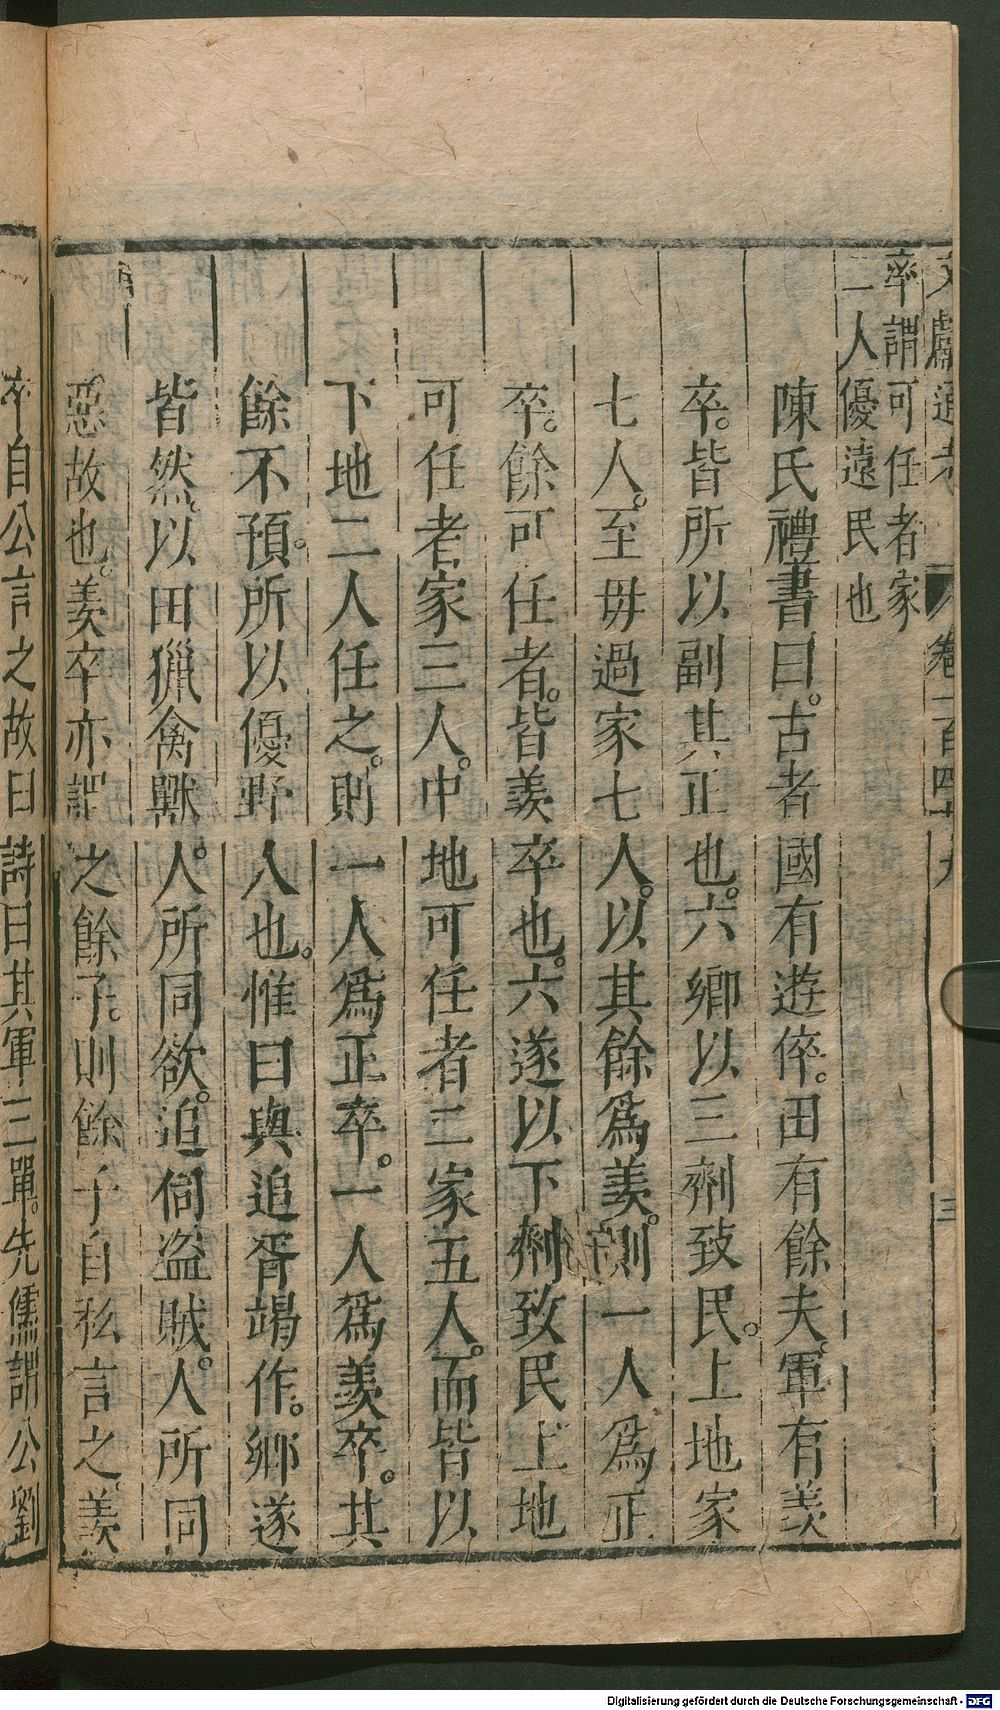 文獻通考 卷一百四十九 三
卒謂可任者家
二人優遠民也
陳氏禮書曰古者國有遊倅田有餘夫軍有羨
卒皆所以副其正也六鄉以三劑致民上地家
七人至毋過家七人以其餘爲羨則一人爲正
卒餘可任者皆羨卒也六遂以下劑致民上地
可任者家三人中地可任者二家五人而皆以
下地二人任之則一人爲正卒一人爲羨卒其
餘不預所以優野人也惟田與追胥竭作鄉遂
皆然以田獵禽獸人所同欲追伺盗賊人所同
惡故也羨卒亦謂之餘子則餘子自私言之羨
卒自公言之故曰詩曰其軍三單先儒謂公劉
Digitalisierung gefördert durch die Deutsche Forschungsgemeinschaft - DFG